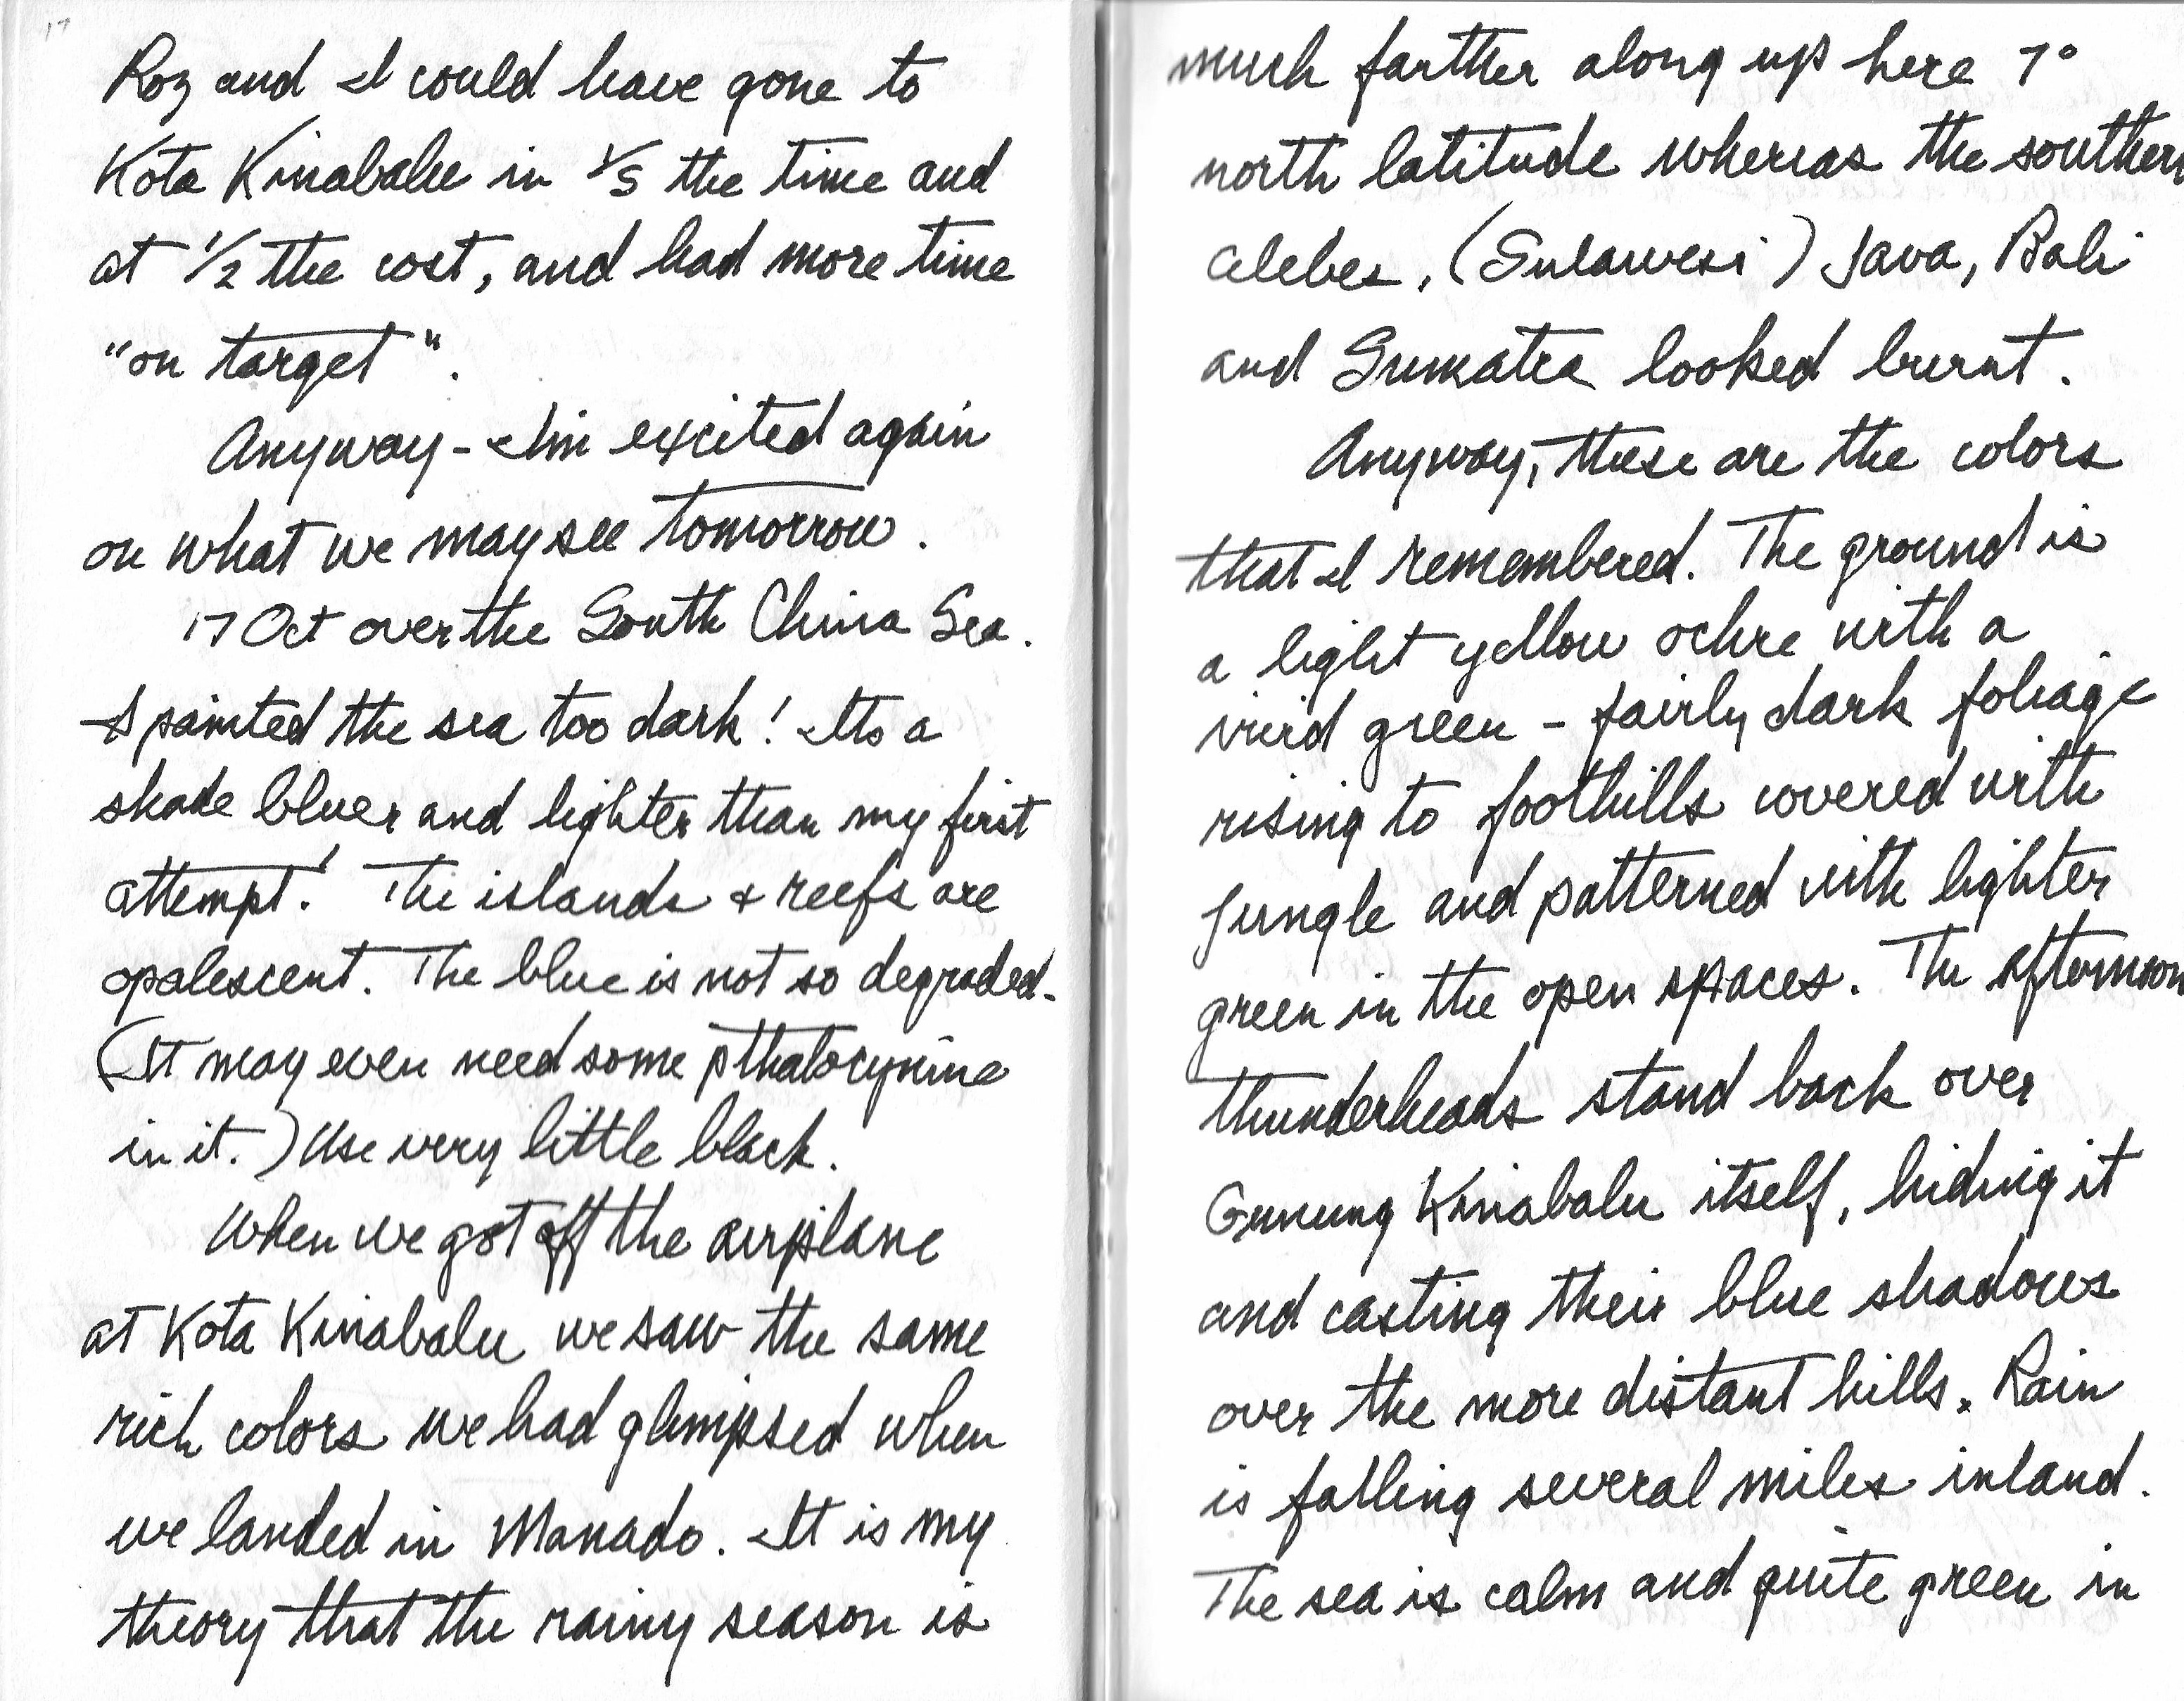 17
Roz and I could have gone to
Kota Kinabalu in 1/5 the time and
at 1/2 the cost, and had more time
"on target".
Anyway - I'm excited again
on what we may see tomorrow.
17 Oct over the South China Sea.
I painted the sea too dark! Its a
shade bluer and lighter than my first
attempt! The islands & reefs are
opalescent. The blue is not so degraded.
(It may even need some pthalocynine
in it.) Use very little black.
When we got off the airplane
at Kota Kinabalu we saw the same
rich colors we had glimpsed when
we landed in Manado. It is my
theory that the rainy season is
much farther along up here 7°
north latitude whereas the southern
Celebes, (Sulawesi) Java, Bali
and Sumatra looked burnt.
Anyway, these are the colors
that I remembered. The ground is
a light yellow ochre with a
virid green - fairly dark foliage
rising to foothills covered with
jungle and patterned with lighter
green in the open spaces. The afternoon
thunderheads stand back over
Gunung Kinabalu itself, hiding it
and casting their blue shadows
over the more distant hills. Rain
is falling several miles inland.
The sea is calm and quite green in